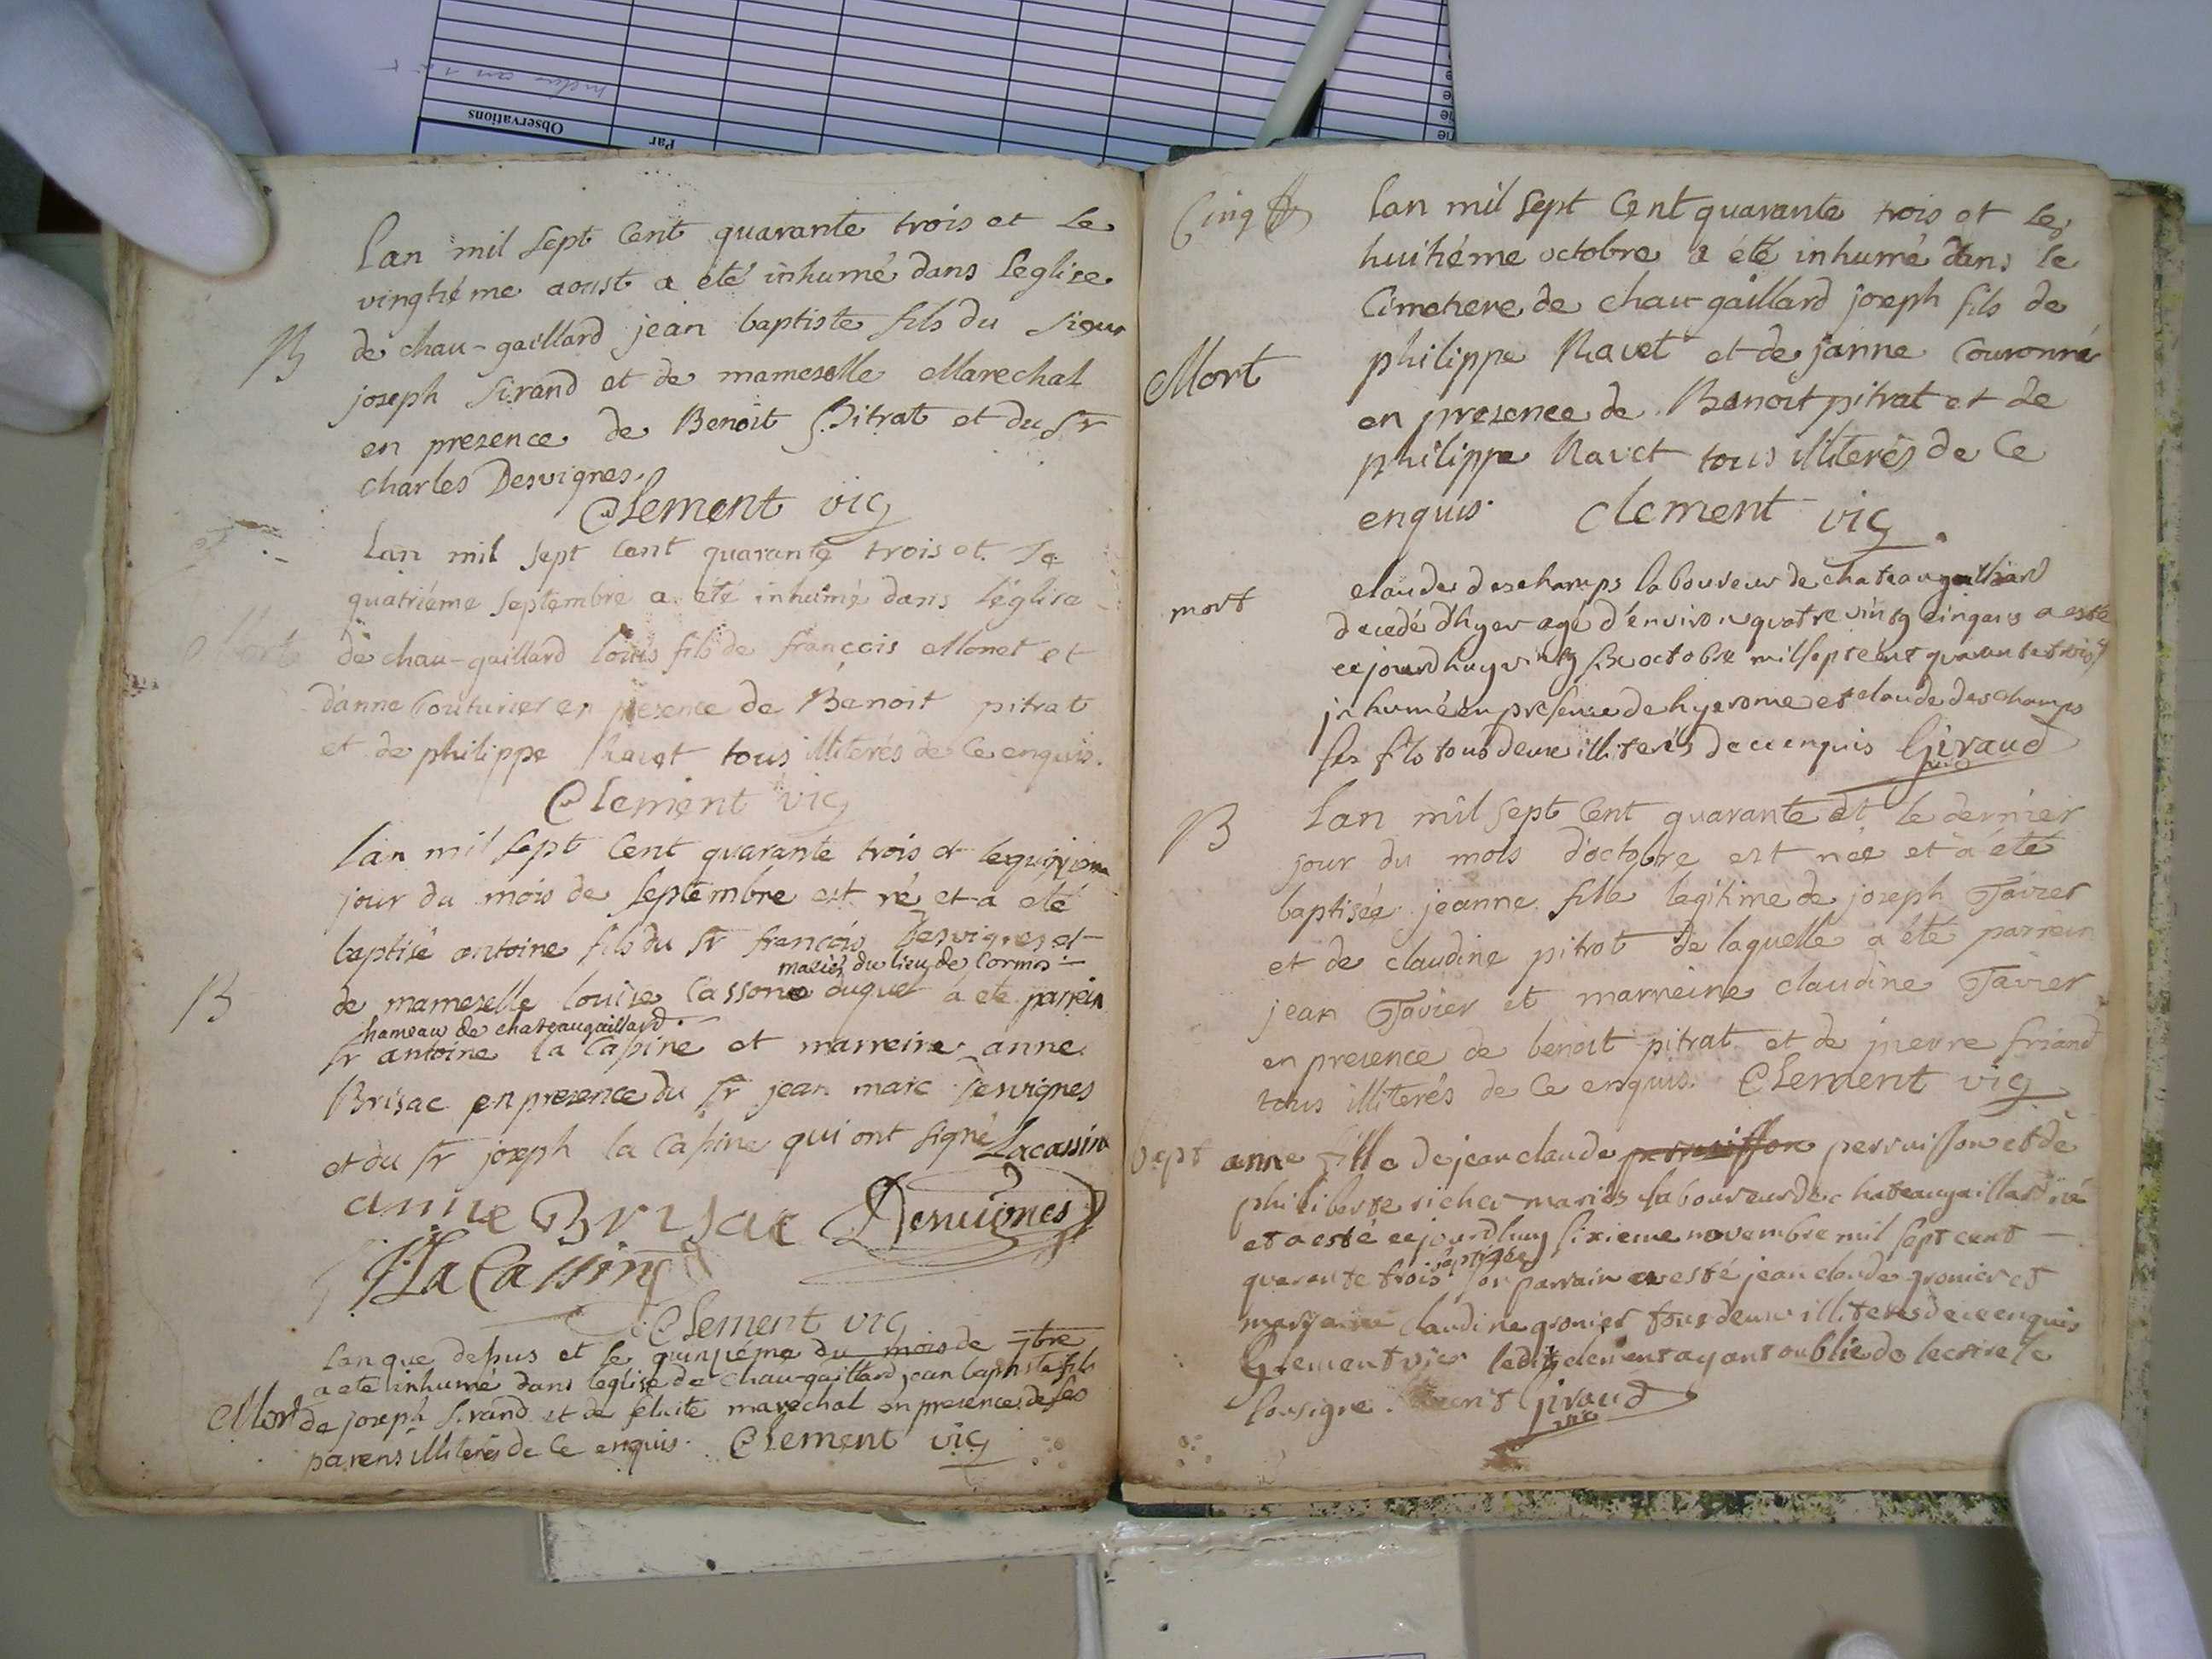 Observations
Par
Lan mil sept Cent quarante trois et le
vingtiéme aoust a été inhumé dans leglise
B
de chau-gaillard jean baptiste fils du sieur
joseph Sirand et de mameselle Marechal
en prezence de Benoit Pitrat et du Sr
charles Desvignes.
Clement vic
Lan mil sept cent quarante trois et le
quatriéme septembre a été inhumé dans l'église
de chau-gaillard louis fils de françois Monet et
d'anne Couturier en presence de Benoit pitrat
et de philippe Ravet tous illiterés de Ce enquis.
Clement vic
Lan mil sept Cent quarante trois et le
jour du mois de septembre est né et a eté
baptisé antoine fils du Sr françois Desvignes et
mariés du lieu de Cormos
B
de mameselle louise Cassone duquel a ete parrein
hameau de chateaugaillard.
Sr antoine la Caßine et marreine anne
Brisac en prezence du Sr jean marc Desvignes
et du Sr joseph la Caßine qui ont signé Lacassin
anne Brysac Desvignes
La Cassin
Clement vic
Lan que deßus et le quinziéme du mois de 7bre
a eté inhumé dans leglise de Chau-gaillard jean baptiste fils
Mort
de joseph Sirand et de felicité marechal en presence de ses
parens illiterés de Ce enquis. Clement vic
Cinq
Lan mil Sept Cent quarante trois et le
huitiéme octobre a été inhumé dans le
Cimetiere de chau-gaillard joseph fils de
Mort
philippe Ravet et de janne Couronné
en prezence de Benoit pitrat et de
philippe Ravet tous illiterés de Ce
enquis. Clement vic
mort
claude deschamps laboureur de chateaugaillard
decedé d'hyer agé d'environ quatre vingt cinq ans a esté
ce jourdhuy vingt six octobre mil sept cent quarante trois
inhumé en presence de hyerome et claude deschamps
ses fils tous deux illiterés de ce enquis Giraud
vic
B
Lan mil sept Cent quarante et le dernier
jour du mois d'octobre est née et a été
baptisée jeanne fille legitime de joseph Tavier
et de claudine pitrot de laquelle a été parrein
jean Tavier et marreine claudine Tavier
en presence de benoit pitrat et de pierre friand
tous illiterés de Ce enquis. Clement vic
bapt
anne fille de jean claude perruisson perruisson et de
philiberte richer mariés laboureurs de chateaugaillard né
et a esté ce jourdhuy sixieme novembre mil sept cent
baptisée
quarante trois son parrain a esté jean claude gronier et
marraine claudine gronier tous deux illiteres de ce enquis
Clement vic ledit clement ayant oublie de lecrire je
soussigne. ecrit Giraud
vic